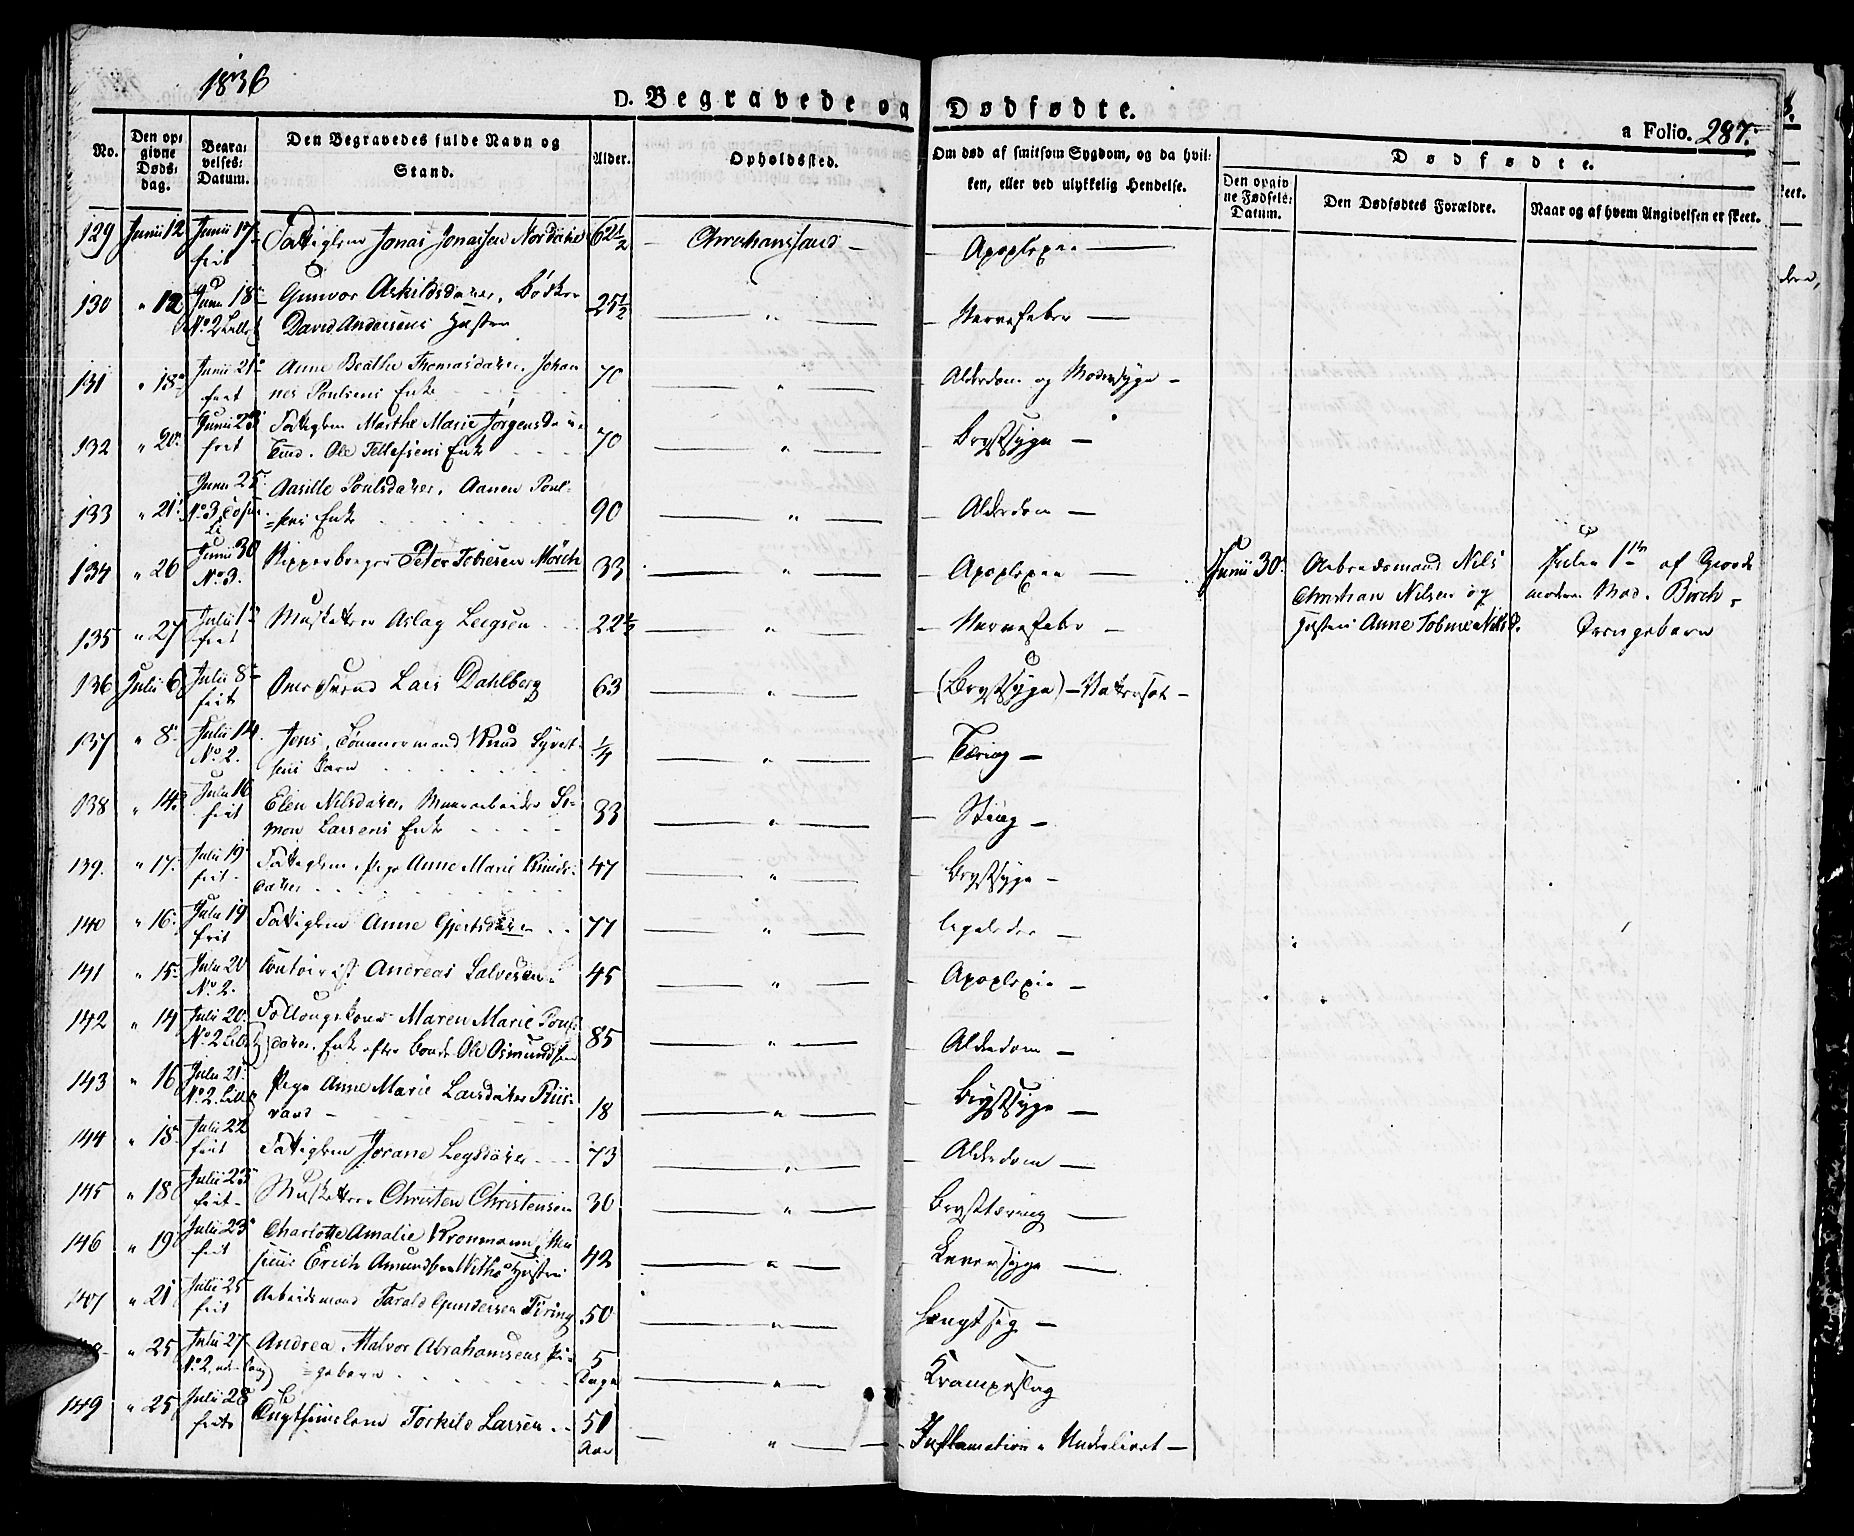 1836
D. Begravede og Dødfødte.
a Folio. 287.
No.
Den opgivne Dødsdag.
Begravelses-Datum.
Den Begravedes fulde Navn og Stand.
Alder.
Opholdssted.
Om død af smitsom Sygdom, og da hvilken, eller ved ulykkelig Hendelse.
Dødfødte.
Den opgivne Fødsels-Datum.
Den Dødfødtes Forældre.
Naar og af hvem Angivelsen er skeet.
129 Junii 12 Junii 17 frit Fattiglem Jonas Jonassen 62½ Christianssand Apoplexie
130 " 12 Junii 18 No. 2 Gunvor Askildsdatter, Bødker David Andersens Hustru 25½ " Nervefeber
131 " 18 Junii 21 frit Anne Beathe Thomasdatter, Johannes Poulsens Enke 70 " Alderdom og Modersyge
132 " 20 Junii 23 frit Fattiglem Marthe Marie Jørgensdatter Ole Tellefsens Enke 70 " Brystsyge
133 " 21 Junii 25 No. 3 Aasille Poulsdatter, Aanen Poulsens Enke 90 " Alderdom
134 " 26 Junii 30 No. 3. Skipperborger Peter Tobiesen Mörch 33 " Apoplexie
Junii 30 Arbeidsmand Nils Christian Nilsen og Hustru Anne Tobine Nilsd.
1ste af Giordemoderen Mad. Birch, Drengebarn
135 " 27 Julii 1 frit Musketeer Aslag Leegsen 22½ " Nervefeber
136 Julii 6 Julii 8 frit Lars Dahlberg 63 " (Brystsyge) Vattersot
137 " 8 Julii 14 No. 2. Jens, Tømmermand Knud Syvertsens Barn ¼ " Tæring
138 " 14 Julii 16 frit Elen Nilsdatter, Simon Larsens Enke 33 " Sting
139. " 17 Julii 19 frit Fattiglem, Pige Anne Marie Knudsdatter 47 " Brystsyge
140 " 16 Julii 19 frit Fattiglem Anne Gjertsdatter 77 " ligeledes
141 " 15 Julii 20 No. 2. Contoirist Andreas Salvesen 45 " Apoplexie
142 " 14 Julii 20 No. 2 Maren Marie Poulsdatter, Enke efter Bonde Ole Osmundsen 85 " Alderdom
143 " 16 Julii 21 No. 2. Pige Anne Marie Larsdatter 18 " Brystsyge
144 " 18 Julii 22 frit Fattiglem Jorane Legsdatter 73 " Alderdom
145 " 18 Julii 23 frit Musketeer Christen Christensen 30 " Brysttæring
146 " 19 Julii 23 frit Charlotte Amalie Kronmann, Erich Amundsen Hustru 42 " Leversyge
147 " 21 Julii 25 frit Arbeidsmand Tarald Gundersen 50 "
" 25 Julii 27 No. 2 Andrea, Halvor Abrahamsens Pigebarn 5 Dage " Krampeslag
149 " 25 Julii 28 frit Torkild Larsen 51 Aar " Inflamation i Underlivet